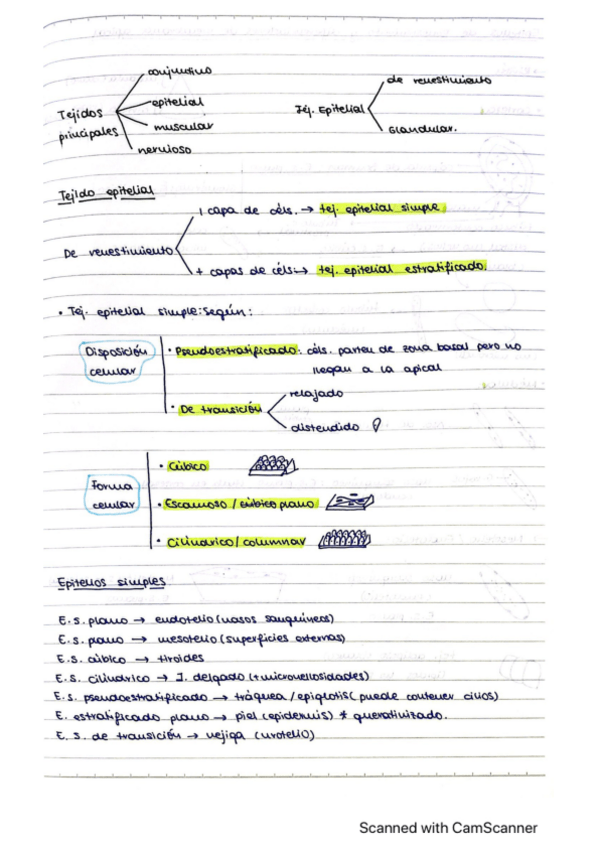 Tejidos principales
conjuntivo
epitelial
muscular
nervioso
Tej. Epitelial
de revestimiento
Glandular.
Tejido epitelial
De revestimiento
1 capa de céls. → tej. epitelial simple
+ capas de céls → tej. epitelial estratificado.
• Tej. epitelial simple: según:
Disposición celular
• Pseudoestratificado: céls. parten de zona basal pero no
llegan a la apical
• De transición
relajado
distendido
Forma celular
• Cúbico
• Escamoso / cúbico plano
• Cilíndrico / columnar
Epitelios simples
E. s. plano → endotelio (vasos sanguíneos)
E. s. plano → mesotelio (superficies externas)
E. s. cúbico → tiroides
E. s. cilíndrico → I. delgado (+ microvellosidades)
E. s. pseudoestratificado → tráquea / epiglotis (puede contener cilios)
E. estratificado plano → piel (epidermis) * queratinizado.
E. s. de transición → vejiga (urotelio)
Scanned with CamScanner